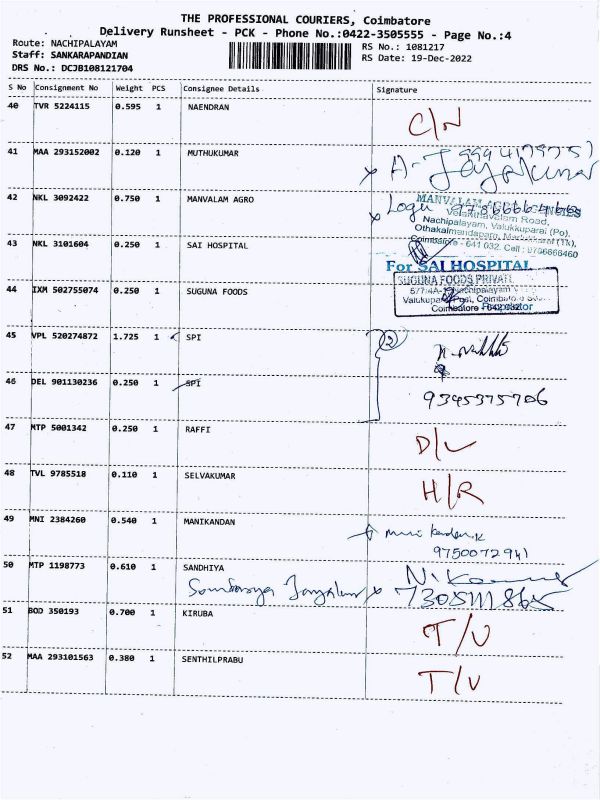 THE PROFESSIONAL COURIERS, Coimbatore
Delivery Runsheet - PCK - Phone No.:0422-3505555 - Page No.:4
Route: NACHIPALAYAM
RS No.: 1081217
Staff: SANKARAPANDIAN
RS Date: 19-Dec-2022
DRS No.: DCJB108121704
S No Consignment No Weight PCS Consignee Details Signature
40 TVR 5224115 0.595 1 NAENDRAN
C/N
41 MAA 293152002 0.120 1 MUTHUKUMAR
42 NKL 3092422 0.750 1 MANVALAM AGRO
Logu
MANVALAM AGRO AGENCIES
Velanthavalam Road,
Nachipalayam, Valukkuparai (Po),
Coimbatore - 641 032. Cell : 9786666460
43 NKL 3101604 0.250 1 SAI HOSPITAL
For SAI HOSPITAL
Proprietor
44 IXM 502755074 0.250 1 SUGUNA FOODS
SUGUNA FOODS PRIVATE
Coimbatore - 642 032.
45 VPL 520274872 1.725 1 SPI
2
46 DEL 901130236 0.250 1 SPI
9345375706
47 MTP 5001342 0.250 1 RAFFI
D/L
48 TVL 9785518 0.110 1 SELVAKUMAR
H/R
49 MNI 2384260 0.540 1 MANIKANDAN
9750072941
50 MTP 1198773 0.610 1 SANDHIYA
51 BOD 350193 0.700 1 KIRUBA
T/U
52 MAA 293101563 0.380 1 SENTHILPRABU
T/U